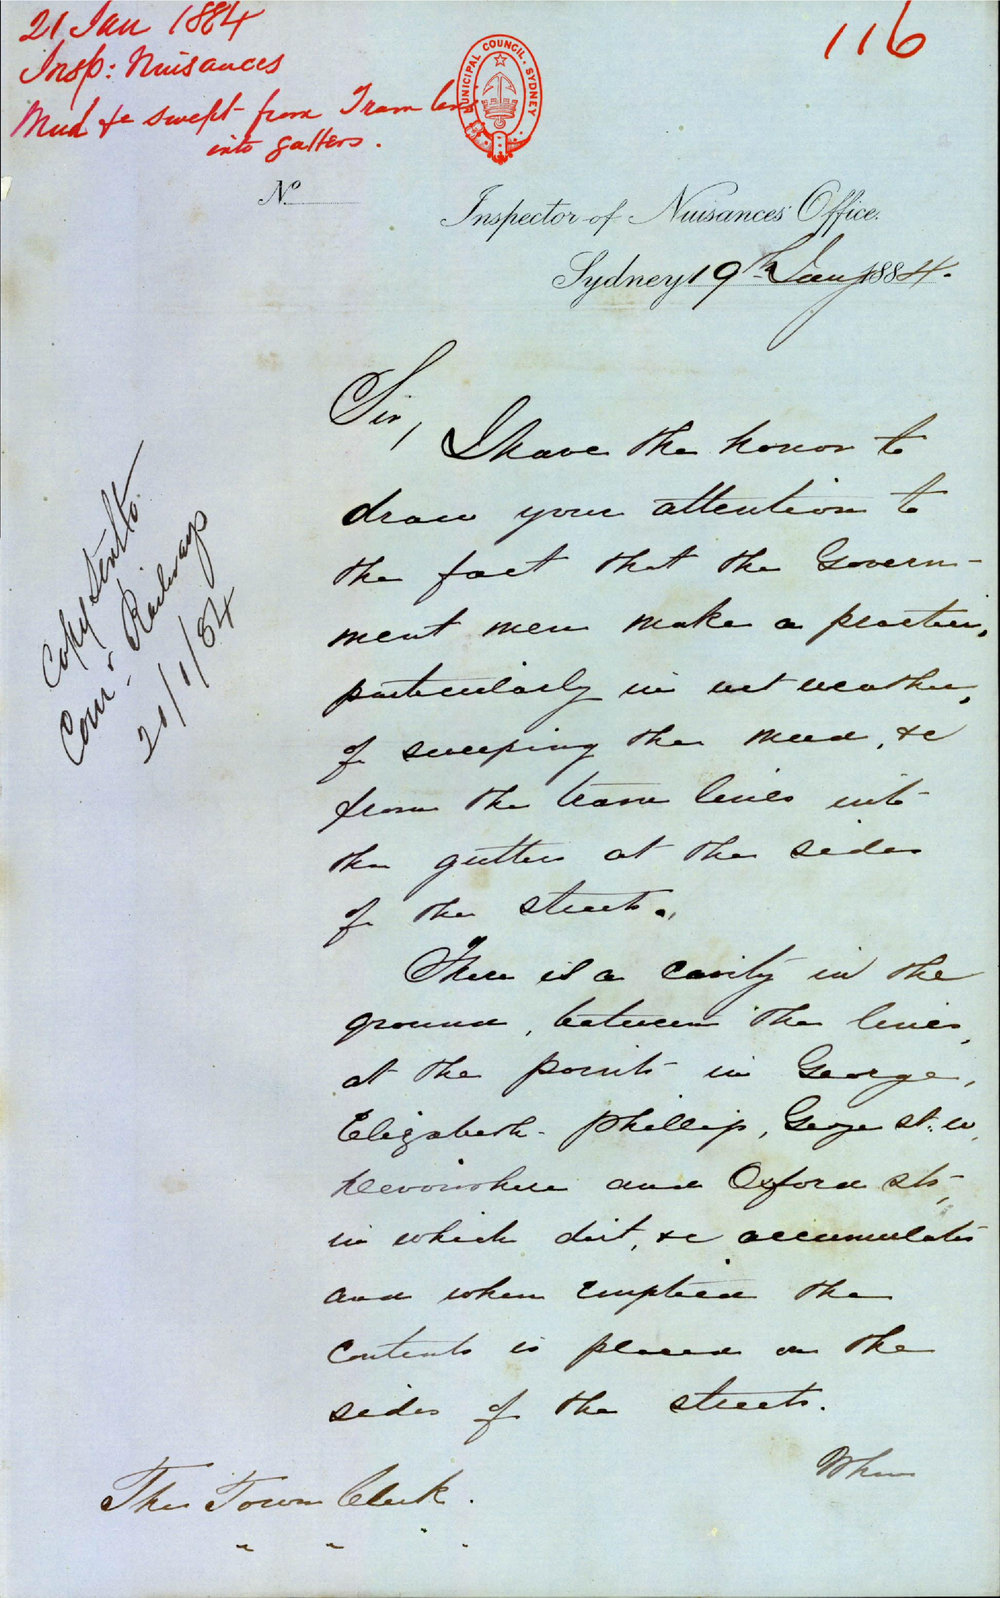 21 Jan 1884
116
Insp: Nuisances
Mud &c swept from Tram lines
into gutters.
MUNICIPAL COUNCIL. SYDNEY
No
Inspector of Nuisances Office.
Sydney 19th Jany 1884.
Copy sent to
Comr Railways
21/1/84
Sir,
I have the honor to
draw your attention to
the fact that the Govern-
ment men make a practice,
particularly in wet weather,
of sweeping the mud, &c
from the tram lines into
the gutters at the sides
of the streets.
There is a cavity in the
ground, between the lines,
at the points in George,
Elizabeth- Phillip, George St. W,
Devonshire and Oxford Sts,
in which dirt, &c accumulates
and when emptied the
contents is placed on the
sides of the streets.
When
The Town Clerk.